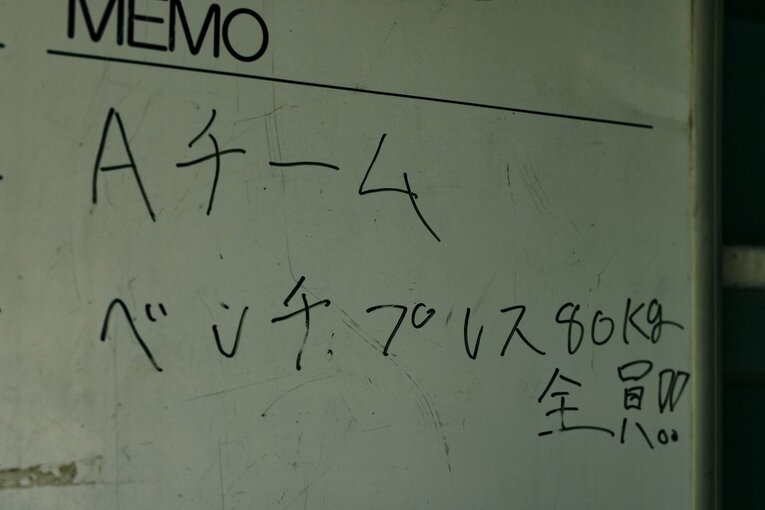 MEMO
Aチーム
ベンチプレス80Kg
全員!!